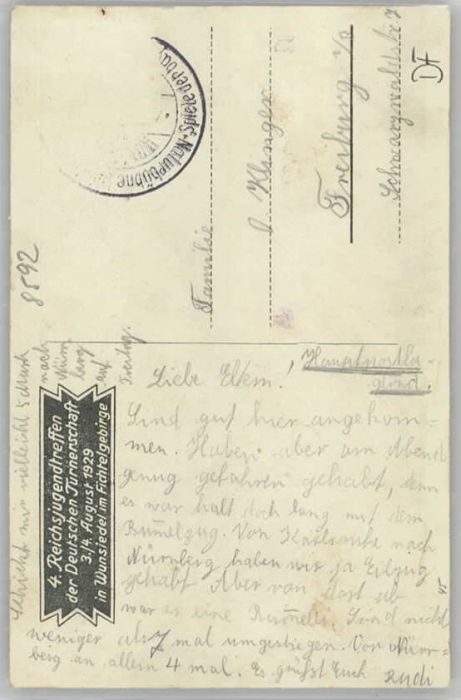 Familie
Klunger
Freiburg i/B
8592
DF
4. Reichsjugendtreffen
der Deutschen Turnerschaft
3./4. August 1929
in Wunsiedel im Fichtelgebirge
Hauptpostla-
gernd.
Liebe Eltern!
Sind gut hier angekom=
men. Haben aber am Abend
genug gefahren gehabt, denn
es war halt doch lang mit dem
Bummelzug. Von Karlsruhe nach
Nürnberg haben wir ja Eilzug
gehabt Aber von dort ab
war es eine Bummelei. Sind nicht
weniger als 7 mal umgestiegen. Von Nürn=
berg an allein 4 mal. Es grüßt Euch Rudi
Schickt mir vielleicht 5 Mark
nach
Nürn
berg
auf
Freitag.